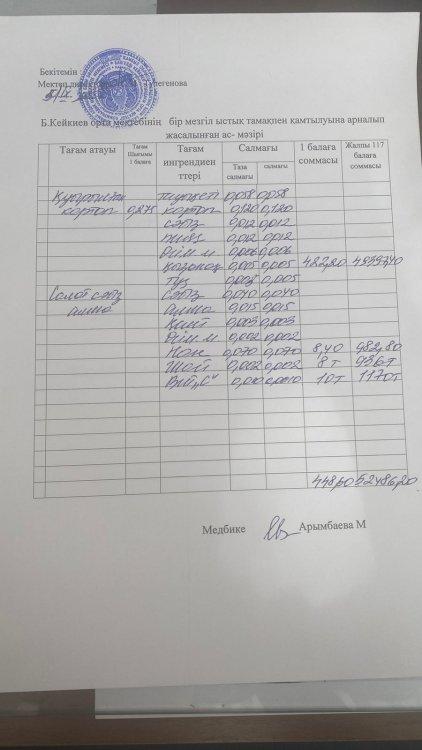 Бекітемін
Мектеп
Б.Кейкиев орта мектебінің бір мезгіл ыстық тамақпен қамтылуына арналып
жасалынған ас- мәзірі
Тағам атауы Тағам Шығымы 1 балаға Тағам ингрендиенттері Салмағы Таза салмағы салмағы 1 балаға соммасы Жалпы 117 балаға соммасы
0,058 0,058
картоп 0,275 картоп 0,120 0,120
сәбіз 0,012 0,012
пияз 0,012 0,012
Өсім м 0,006 0,006
0,005 0,005 422,20
тұз 0,003 0,005
Салат сәбіз сәбіз 0,040 0,040
алма алма 0,015 0,015
Қант 0,003 0,003
Өсім м 0,002 0,002
Нан 0,070 0,070 8,40 982,80
Шай 0,002 0,002 8 т 936 т
0,010 0,0010 10 т 1170 т
448,60 52486,20
Медбике Арымбаева М